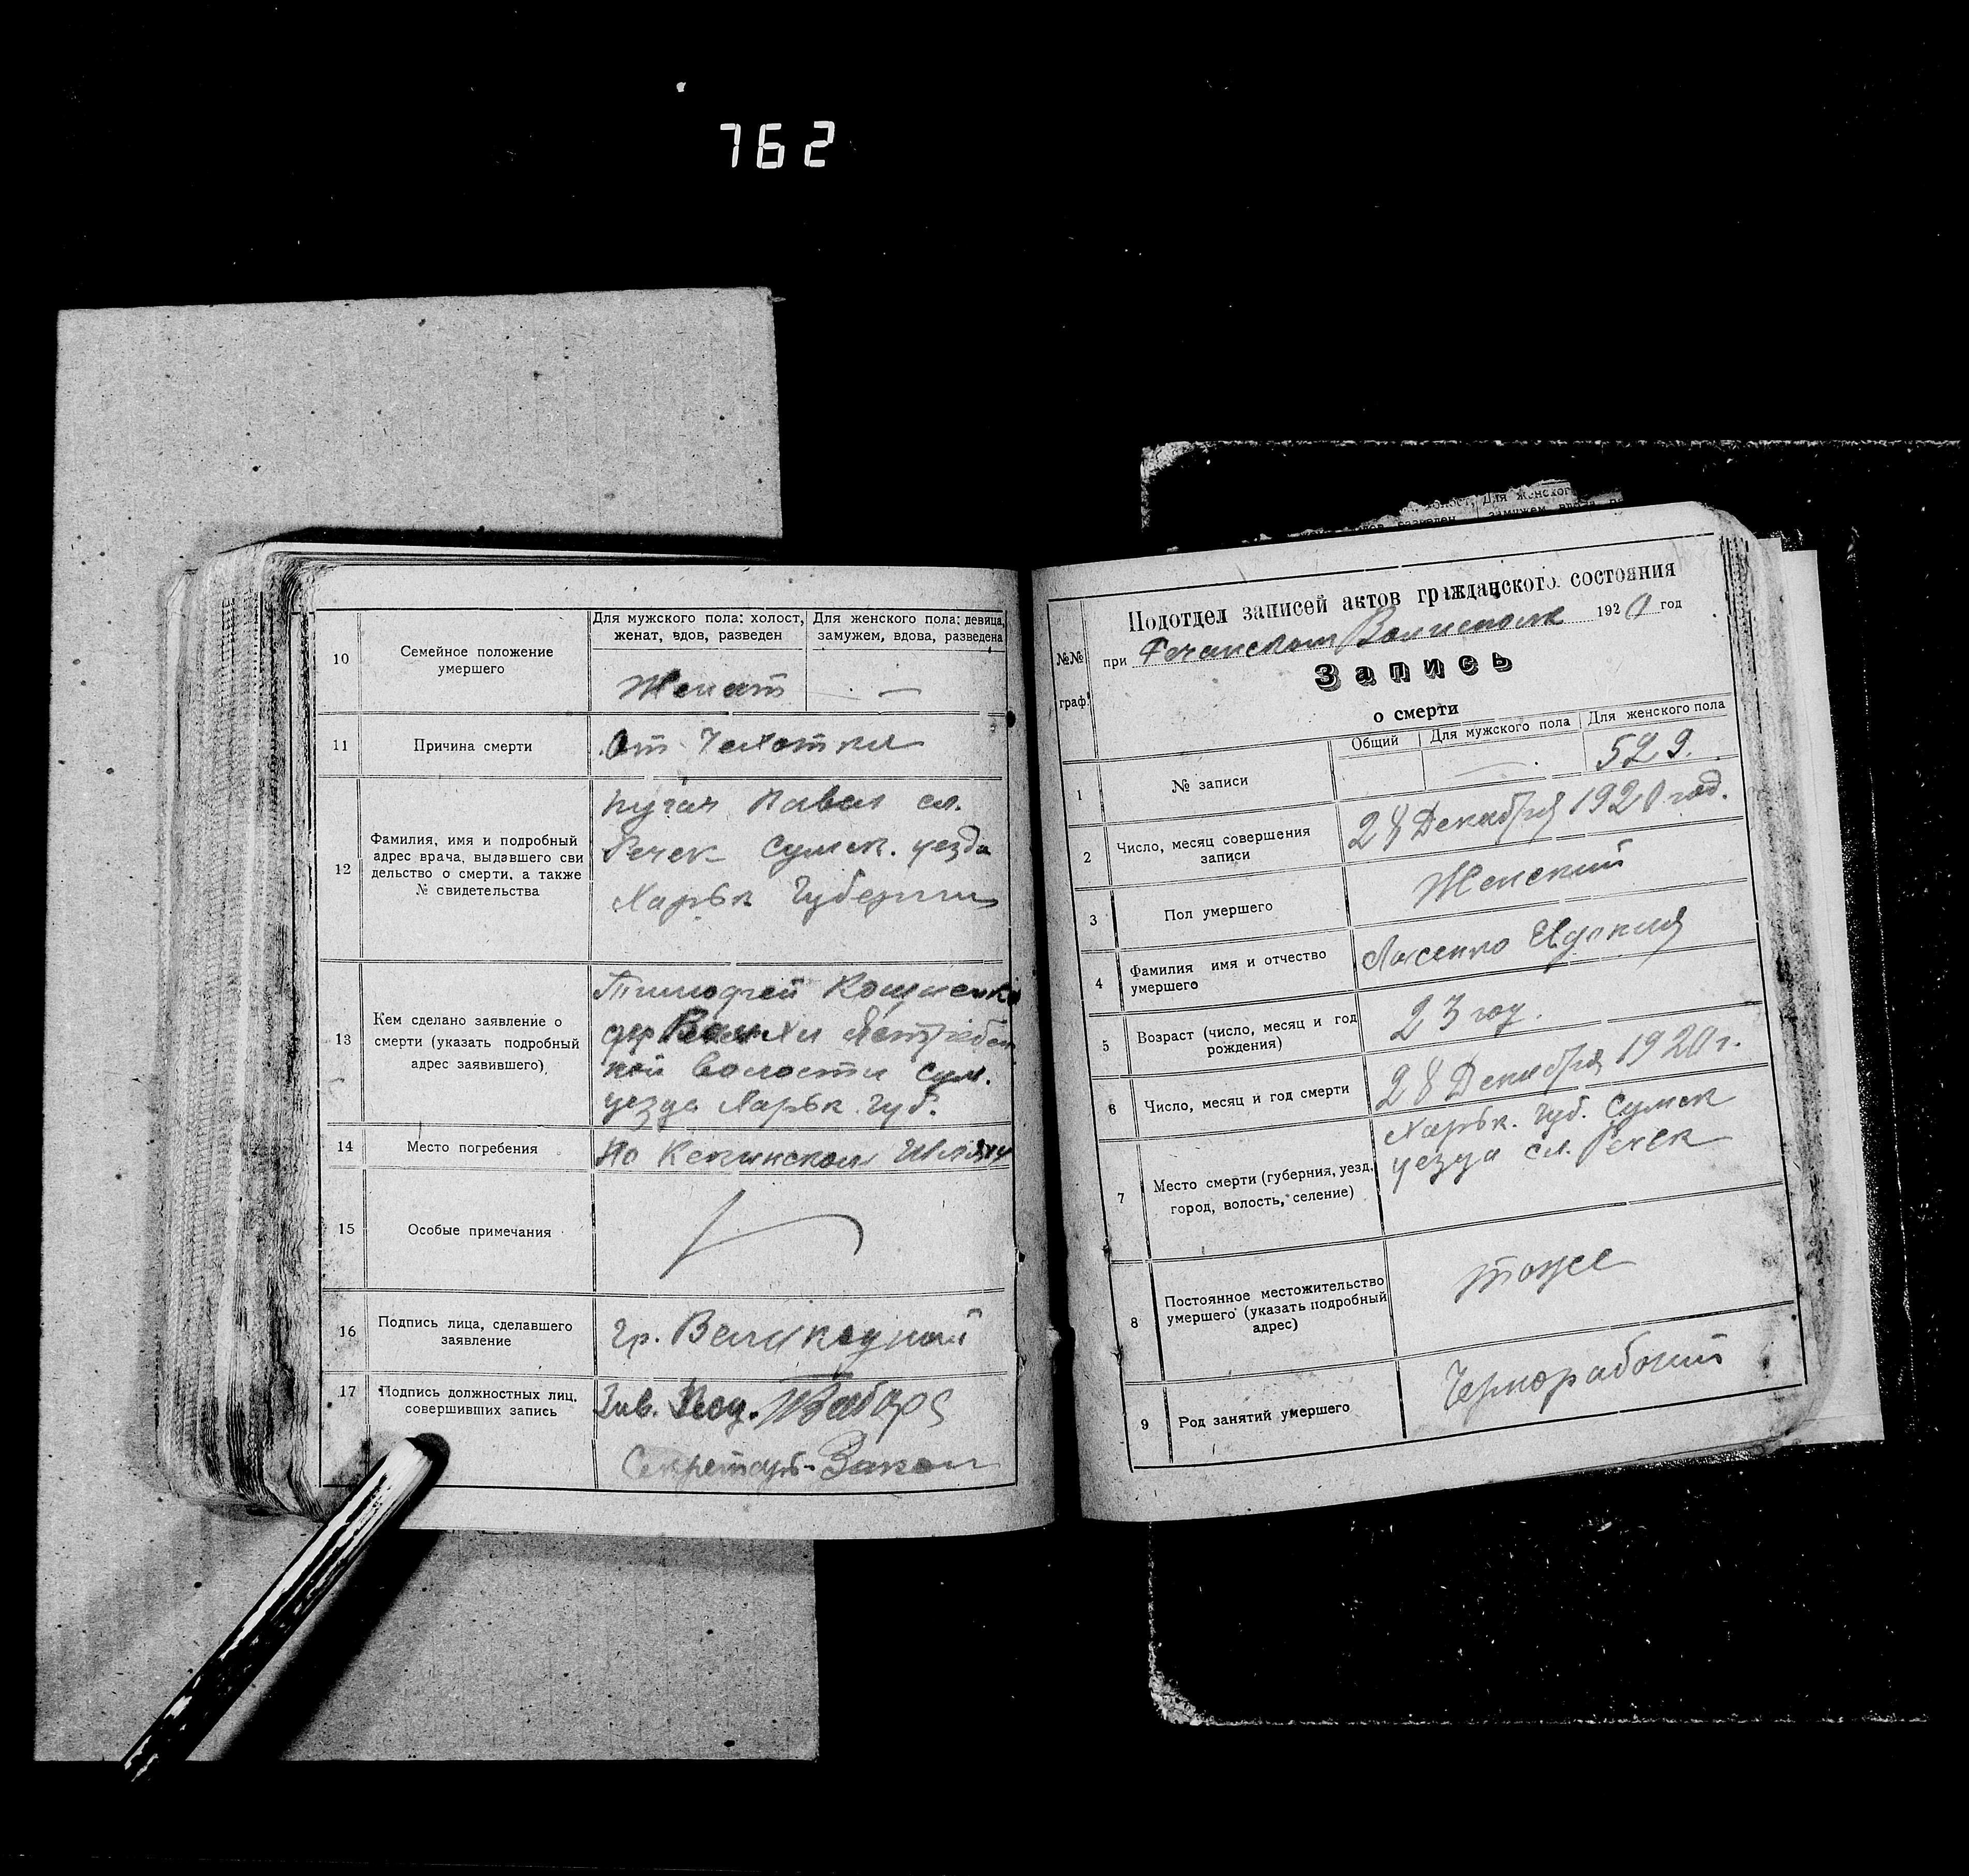 762
10
Семейное положение
умершего
Для мужского пола: холост,
женат, вдов, разведен
Для женского пола: девица,
замужем, вдова, разведена
Женат
—
11
Причина смерти
От Чахотки
12
Фамилия, имя и подробный
адрес врача, выдавшего сви
дельство о смерти, а также
№ свидетельства
Пугач Павел сл.
Речек Сумск. уезда
Харьк Губернии
13
Кем сделано заявление о
смерти (указать подробный
адрес заявившего)
Тимофей
кой волости Сум.
уезда Харьк. Губ.
14
Место погребения
На Кекинском
15
Особые примечания
16
Подпись лица, сделавшего
заявление
гр.
17
Подпись должностных лиц,
совершивших запись
Зав.
Секретарь
Для женского
замужем
№№
граф.
Подотдел записей актов гражданского состояния
при Речанском Волисполк 1920 год
Запись
о смерти
Общий
Для мужского пола
Для женского пола
1
№ записи
529.
2
Число, месяц совершения
записи
28 Декабря 1920 год.
3
Пол умершего
Женский
4
Фамилия имя и отчество
умершего
5
Возраст (число, месяц и год
рождения)
23 год.
6
Число, месяц и год смерти
28 Декабря 1920 г.
7
Место смерти (губерния, уезд,
город, волость, селение)
Харьк. Губ. Сумск
уезда сл. Речек
8
Постоянное местожительство
умершего (указать подробный
адрес)
тоже
9
Род занятий умершего
Чернорабочий